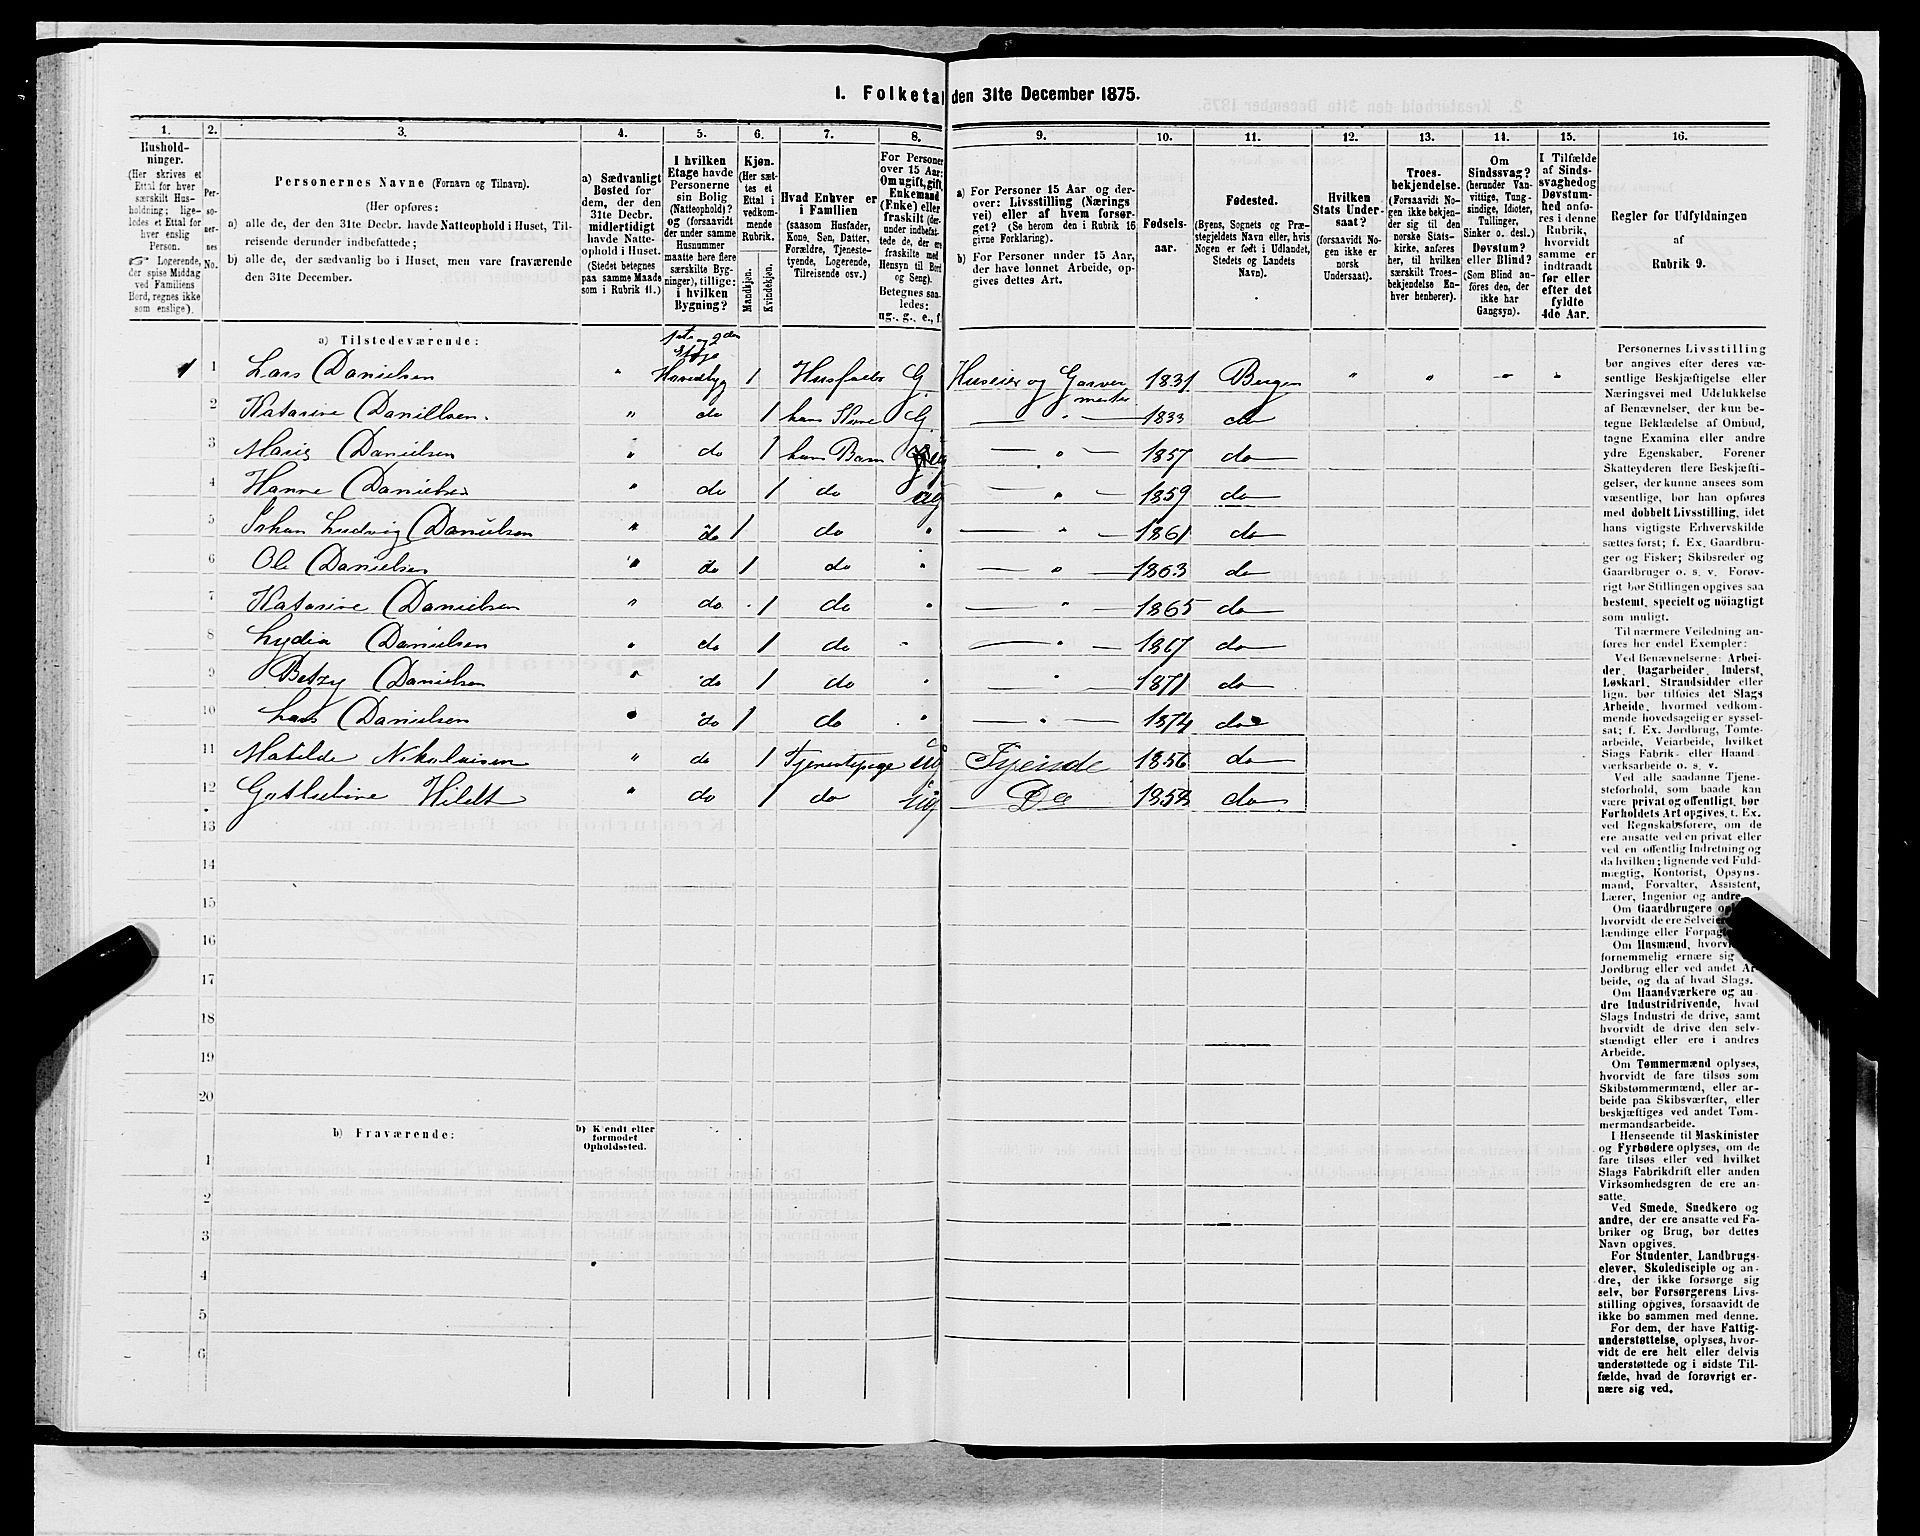 1. Folketal den 31te December 1875.
1. 2. 3. 4. 5. 6. 7. 8. 9. 10. 11. 12. 13. 14. 15. 16.
Hushold-
ninger.
(Her skrives et
Ettal for hver
særskilt Hus-
holdning; lige-
ledes et Ettal for
hver enslig
Person.
☞ Logerende,
der spise Middag
ved Familiens
Bord, regnes ikke
som enslige).
Per-
so-
ner-
nes
No.
Personernes Navne (Fornavn og Tilnavn).
(Her opføres:
a) alle de, der den 31te Decbr. havde Natteophold i Huset, Til-
reisende derunder indbefattede;
b) alle de, der sædvanlig bo i Huset, men vare fraværende
den 31te December.
a) Sædvanligt
Bosted for
dem, der den
31te Decbr.
midlertidigt
havde Natte-
ophold i Huset.
(Stedet betegnes
paa samme Maade
som i Rubrik 11.)
I hvilken
Etage havde
Personerne
sin Bolig
(Natteophold)?
og (forsaavidt
der under samme
Husnummer
maatte høre flere
særskilte Byg-
ninger), tillige:
i hvilken
Bygning?
Kjøn.
(Her sæt-
tes et
Ettal i
vedkom-
mende
Rubrik.
Mandkjøn.
Kvindekjøn.
Hvad Enhver er
i Familien
(saasom Husfader,
Kone, Søn, Datter,
Forældre, Tjeneste-
tyende, Logerende,
Tilreisende osv.)
For Personer
over 15 Aar:
Om ugift, gift,
Enkemand
(Enke) eller
fraskilt (der-
under indbefat-
tede de, der ere
fraskilte med
Hensyn til Bord
og Seng).
Betegnes saa-
ledes:
ug., g., e., f.
a) For Personer 15 Aar og der-
over: Livsstilling (Nærings
vei) eller af hvem forsør-
get? (Se herom den i Rubrik 16
givne Forklaring).
b) For Personer under 15 Aar,
der have lønnet Arbeide, op-
gives dettes Art.
Fødsels-
aar.
Fødested.
(Byens, Sognets og Præ-
stegjeldets Navn eller, hvis
Nogen er født i Udlandet,
Stedets og Landets
Navn).
Hvilken
Stats Under-
saat?
(forsaavidt No-
gen ikke er
norsk
Undersaat).
Troes-
bekjendelse.
(Forsaavidt No-
gen ikke bekjen-
der sig til den
norske Stats-
kirke, anføres
her, til hvilken
særskilt Troes-
bekjendelse En-
hver henhører).
Om
Sindssvag?
(herunder Van-
vittige, Tung-
sindige, Idioter,
Tullinger,
Sinker o. desl.)
Døvstum?
eller Blind?
(Som Blind an-
føres den, der
ikke har
Gangsyn).
I Tilfælde
af Sinds-
svaghed og
Døvstum-
hed anfø-
res i denne
Rubrik,
hvorvidt
samme er
indtraadt
før eller
efter det
fyldte
4de Aar.
Regler for Udfyldningen
af
Rubrik 9.
a) Tilstedeværende:
1ste og 2den
Etage
1 1 Lars Danielsen " Hovedbyg 1 Husfader G. Huseier og Garver 1831 Bergen " " " "
mester
2 Katarine Daniellsen. " do 1 hans Kone G. " 1833 do
3 Marie Danielsen " do 1 hans Barn ug " 1857 do
4 Hanne Danielsen " do 1 do ug " 1859 do
5 Johan Ludvig Danielsen " do 1 do " " 1861 do
6 Ole Danielsen " do 1 do " " 1863 do
7 Katarine Danielsen " do 1 do " " 1865 do
8 Lydia Danielsen " do 1 do " " 1867 do
9 Betzy Danielsen " do 1 do " " 1871 do
10 Lars Danielsen " do 1 do " " 1874 do
11 Matilde Nikolaisen " do 1 Tjenestepige ug Tyende 1856 do
12 Hildt " do 1 do ug Do do
13
14
15
16
17
18
19
20
b) Fraværende:
b) Kjendt eller
formodet
Opholdssted.
1
2
3
4
5
6
Personernes Livsstilling
bør angives efter deres væ-
sentlige Beskjæftigelse eller
Næringsvei med Udelukkelse
af Benævnelser, der kun be-
tegne Beklædelse af Ombud,
tagne Examina eller andre
ydre Egenskaber. Forener
Skatteyderen flere Beskjæfti-
gelser, der kunne ansees som
væsentlige, bør han opføres
med dobbelt Livsstilling, idet
hans vigtigste Erhvervskilde
sættes først; f. Ex. Gaardbru-
ger og Fisker; Skibsreder og
Gaardbruger o. s. v. Forøv-
rigt bør Stillingen opgives saa
bestemt, specielt og nöiagtigt
som muligt.
Til nærmere Veiledning an-
føres her endel Exempler:
Ved Benævnelserne: Arbei-
der, Dagarbeider, Inderst,
Løskarl, Strandsidder eller
lign. bør tilføies det Slags
Arbeide, hvormed vedkom-
mende hovedsagelig er syssel-
sat; f. Ex. Jordbrug, Tomte-
arbeide, Veiarbeide, hvilket
Slags Fabrik- eller Haand-
værksarbeide o. s. v.
Ved alle saadanne Tjene-
steforhold, som baade kan
være privat og offentligt, bør
Forholdets Art opgives, t. Ex.
ved Regnskabsførere, om de
ere ansatte ved en privat eller
ved en offentlig Indretning og
da hvilken; lignende ved Fuld-
mægtig, Kontorist, Opsyns-
mand, Forvalter, Assistent,
Lærer, Ingeniør og andre.
Om Gaardbrugere
hvorvidt de ere Selveiere,
lændinge eller
Om Husmænd,
fornemmelig ernære sig
Jordbrug eller ved andet Ar-
beide, og da af hvad Slags.
Om Haandværkere og an-
dre Industridrivende, hvad
Slags Industri de drive, samt
hvorvidt de drive den selv-
stændigt eller ere i andres
Arbeide.
Om Tømmermænd oplyses,
hvorvidt de fare tilsøs som
Skibstømmermænd, eller ar-
beide paa Skibsværfter, eller
beskjæftiges ved andet Tøm-
mermandsarbeide.
I Henseende til Maskinister
og Fyrbødere oplyses, om de
fare tilsøs eller ved hvilket
Slags Fabrikdrift eller anden
Virksomhedsgren de ere an-
satte.
Ved Smede, Snedkere og
andre, der ere ansatte ved Fa-
briker og Brug, bør dettes
Navn opgives.
For Studenter, Landbrugs-
elever, Skoledisciple og an-
dre, der ikke forsørge sig
selv, bør Forsørgerens Livs-
stilling opgives, forsaavidt de
ikke bo sammen med denne.
For dem, der have Fattig-
understøttelse, oplyses, hvor-
vidt de ere helt eller delvis
understøttede og i sidste Til-
fælde, hvad de forøvrigt er-
nære sig ved.